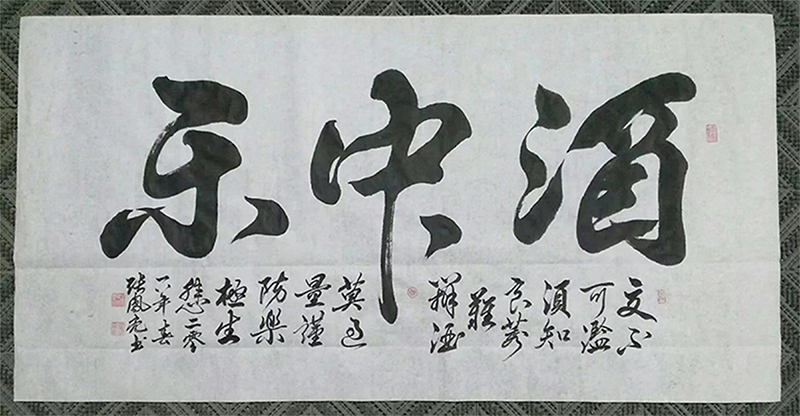 酒中乐
交不
可濫
須知
良莠
難
辨酒
莫過
量謹
防樂
極生
悲二零
一八年春
张凤亮书